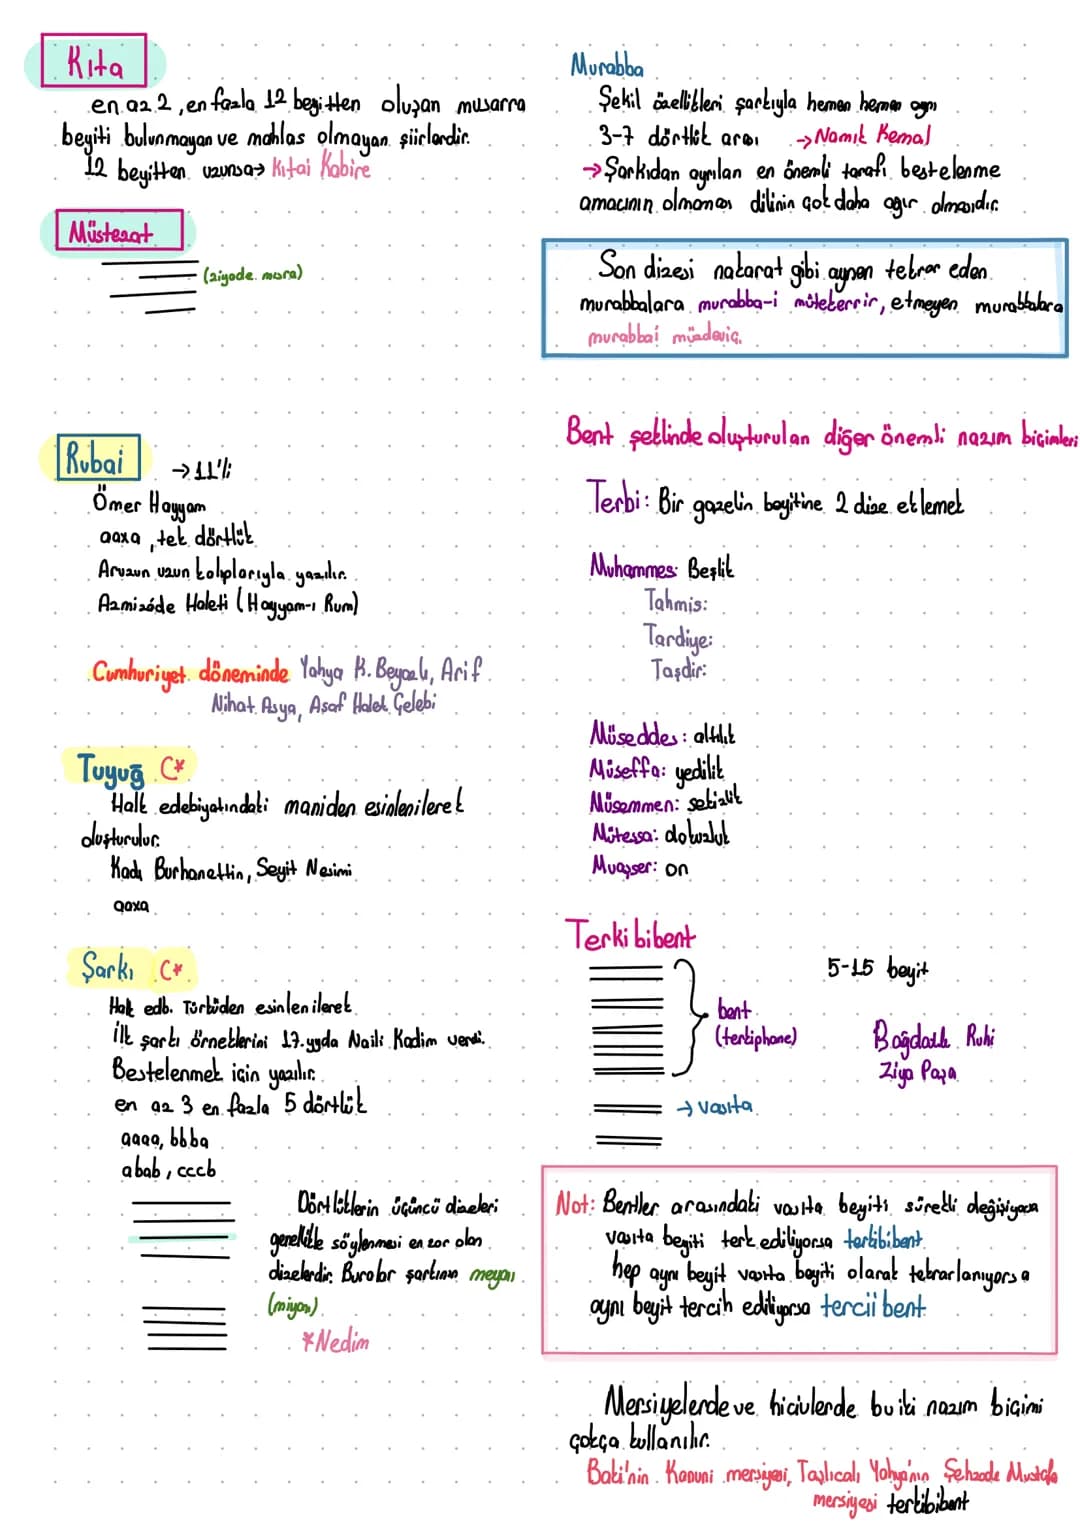 Kıta
en az 2, en fazla 12 beyitten oluşan musarra
beyiti bulunmayan ve mahlas olmayan şiirlerdir.
12 beyitten uzunsa→ Kıtai Kabire
Müstezat
(ziyade mısra)
Rubai → 11'li
Ömer Hayyam
aaxa, tek dörtlük
Aruzun uzun kalıplarıyla yazılır.
Azmizâde Haleti (Hayyam-ı Rum)
Cumhuriyet döneminde Yahya K. Beyatlı, Arif
Nihat Asya, Asaf Halet Çelebi
Tuyuğ C*
Halk edebiyatındaki maniden esinlenilerek
oluşturulur.
Kadı Burhanettin, Seyit Nesimi
aaxa
Şarkı C*
Halk edb. Türküden esinlenilerek
İlk şarkı örneklerini 17.yyda Naili Kadim verdi.
Bestelenmek için yazılır.
en az 3 en fazla 5 dörtlük
aaaa, bbba
abab, cccb
Dörtlüklerin üçüncü dizeleri
genellikle söylenmesi en zor olan
dizelerdir. Buralar şarkının meyanı
(miyan)
*Nedim
Murabba
Şekil özellikleri şarkıyla hemen hemen aynı
3-7 dörtlük arası → Namık Kemal
→Şarkıdan ayrılan en önemli tarafı bestelenme
amacının olmaması dilinin çok daha ağır olmasıdır.
Son dizesi nakarat gibi aynen tekrar eden
murabbalara murabba-i mütekerrir, etmeyen murabbalara
murabbai müzdeviç.
Bent şeklinde oluşturulan diğer önemli nazım biçimleri
Terbi: Bir gazelin beyitine 2 dize eklemek
Muhammes: Beşlik
Tahmis:
Tardiye:
Taşdir:
Müseddes: altılık
Müseffa: yedilik
Müsemmen: sekizlik
Mütessa: dokuzluk
Muaşşer: on
Terkibibent
5-15 beyit
bent
(terkiphane)
Bağdatlı Ruhi
Ziya Paşa
→ vasıta
Not: Bentler arasındaki vasıta beyiti sürekli değişiyorsa
vasıta beyiti terk ediliyorsa terkibibent
hep aynı beyit vasıta beyiti olarak tekrarlanıyorsa
aynı beyit tercih ediliyorsa tercii bent
Mersiyelerde ve hicivlerde bu iki nazım biçimi
çokça kullanılır.
Baki'nin Kanuni mersiyesi, Taşlıcalı Yahya'nın Şehzade Mustafa
mersiyesi terkibibent